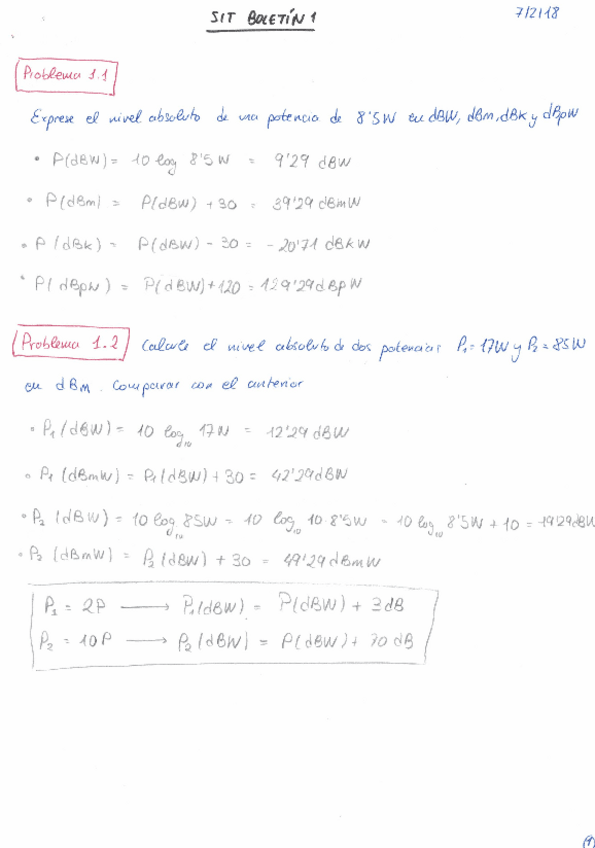 SIT BOLETÍN 1
7/2/18
Problema 1.1
Exprese el nivel absoluto de una potencia de 8'5W en dBW, dBm, dBk y dBpW
• P(dBW) = 10 log 8'5W = 9'29 dBW
• P(dBm) = P(dBW) + 30 = 39'29 dBmW
• P(dBk) = P(dBW) - 30 = -20'71 dBkW
• P(dBpW) = P(dBW)+120 = 129'29 dBpW
Problema 1.2 Calcule el nivel absoluto de dos potencias P₁=17W y P₂=85W
en dBm. Comparar con el anterior
• P₁(dBW) = 10 log₁₀ 17W = 12'29 dBW
• P₁(dBmW) = P₁(dBW)+30 = 42'29 dBW
• P₂(dBW) = 10 log₁₀ 85W = 10 log₁₀ 10·8'5W = 10 log₁₀ 8'5W + 10 = 19'29 dBW
• P₂(dBmW) = P₂(dBW) + 30 = 49'29 dBmW
P₁ = 2P → P₁(dBW) = P(dBW) + 3 dB
P₂ = 10P → P₂(dBW) = P(dBW) + 10 dB
(1)